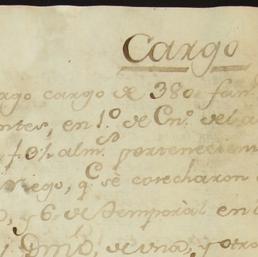 Cargo
rgo cargo de 380 fan
ntes, en 1º de En.º del a
almˢ pertenecien
riego, q.e sè cosecharon
y 6. de temporàl en
de una, y otro